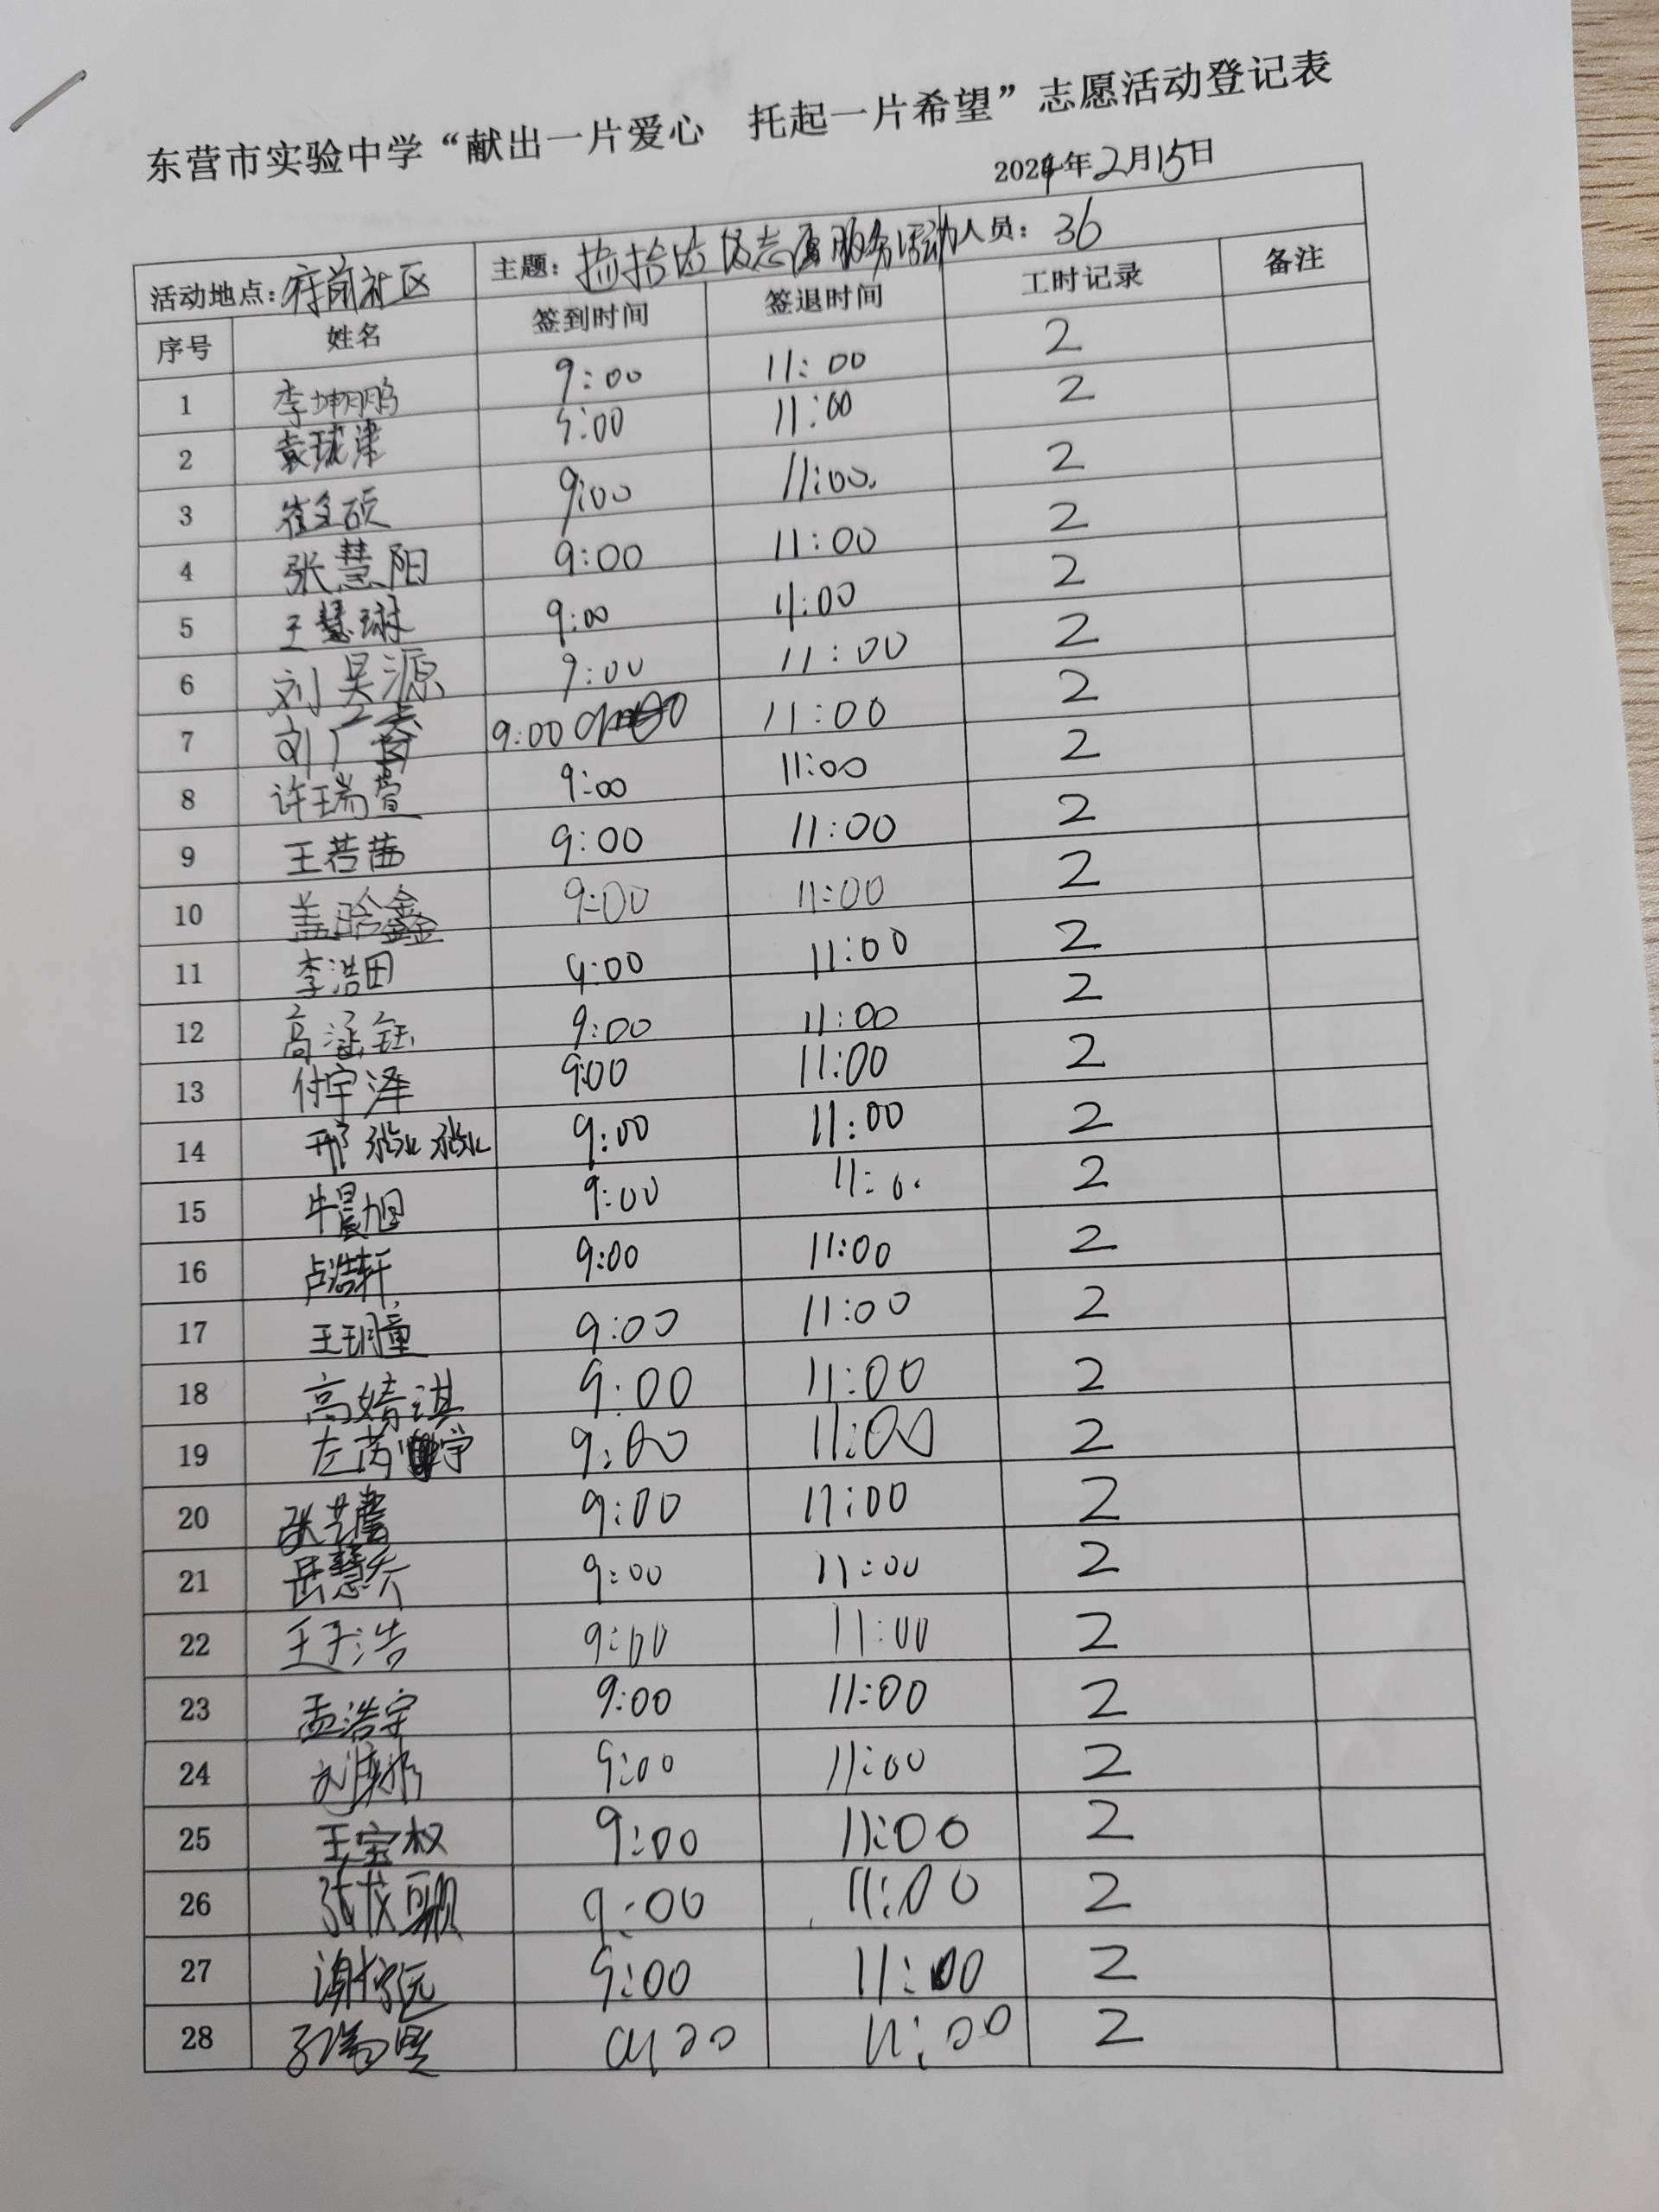 东营市实验中学“献出一片爱心 托起一片希望”志愿活动登记表
2024年2月15日
活动地点：府前社区 主题：捡拾垃圾志愿服务活动 人员：36
序号 姓名 签到时间 签退时间 工时记录 备注
1 李坤鹏 9:00 11:00 2
2 袁珑津 9:00 11:00 2
3 崔文硕 9:00 11:00. 2
4 张慧阳 9:00 11:00 2
5 王慧琳 9:00 11:00 2
6 刘昊源 9:00 11:00 2
7 刘广 9:00 11:00 2
8 许瑞萱 9:00 11:00 2
9 王若茜 9:00 11:00 2
10 盖晗鑫 9:00 11:00 2
11 李浩田 9:00 11:00 2
12 高涵钰 9:00 11:00 2
13 付宇泽 9:00 11:00 2
14 邢淼淼 9:00 11:00 2
15 牛晨旭 9:00 11:0. 2
16 卢浩轩 9:00 11:00 2
17 王玥童 9:00 11:00 2
18 高婧淇 9:00 11:00 2
19 左芮学 9:00 11:00 2
20 张艺 9:00 11:00 2
21 岳慧乔 9:00 11:00 2
22 王子浩 9:00 11:00 2
23 孟浩宇 9:00 11:00 2
24 9:00 11:00 2
25 王宝权 9:00 11:00 2
26 张 9:00 11:00 2
27 谢 远 9:00 11:00 2
28 9:00 11:00 2